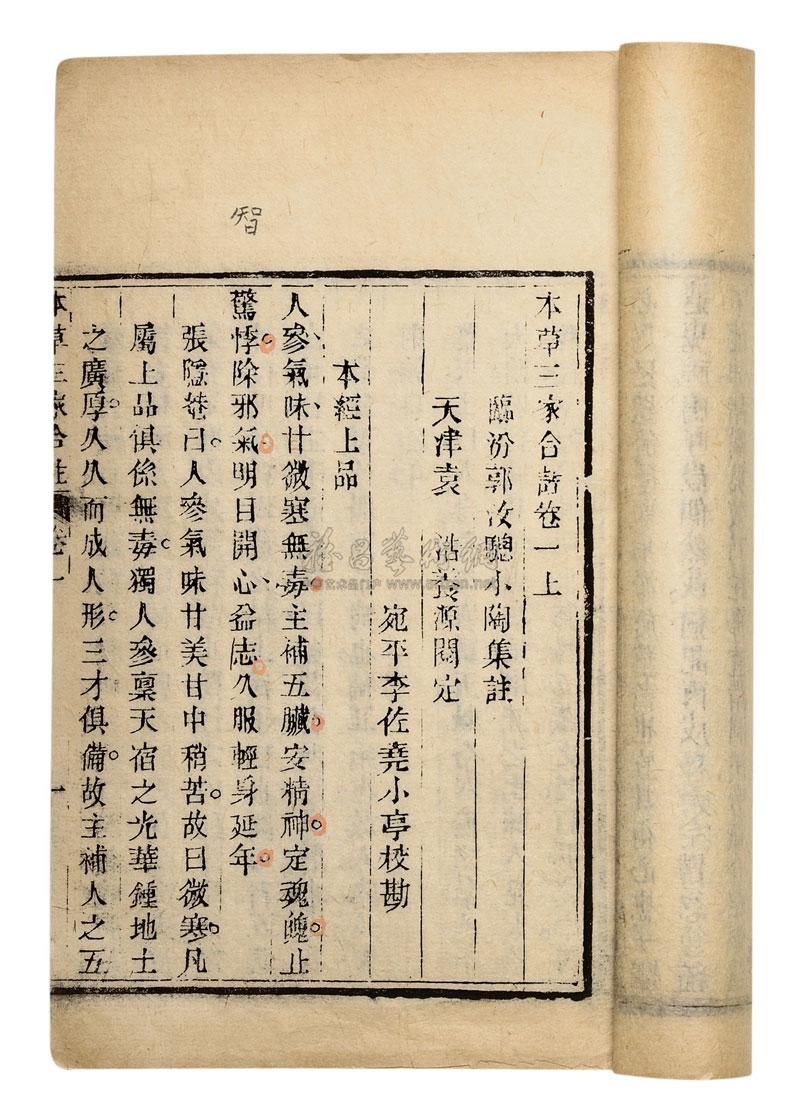 智
本草三家合註卷一上
臨汾郭汝驄小陶集註
天津袁 浩養源閱定
宛平李佐堯小亭校勘
本經上品
人參氣味甘微寒無毒主補五臟安精神定魂魄止
驚悸除邪氣明目開心益志久服輕身延年
張隱菴曰人參氣味甘美甘中稍苦故曰微寒凡
屬上品俱係無毒獨人參稟天宿之光華鍾地土
之廣厚久久而成人形三才俱備故主補人之五
本草三家合註 卷一 一